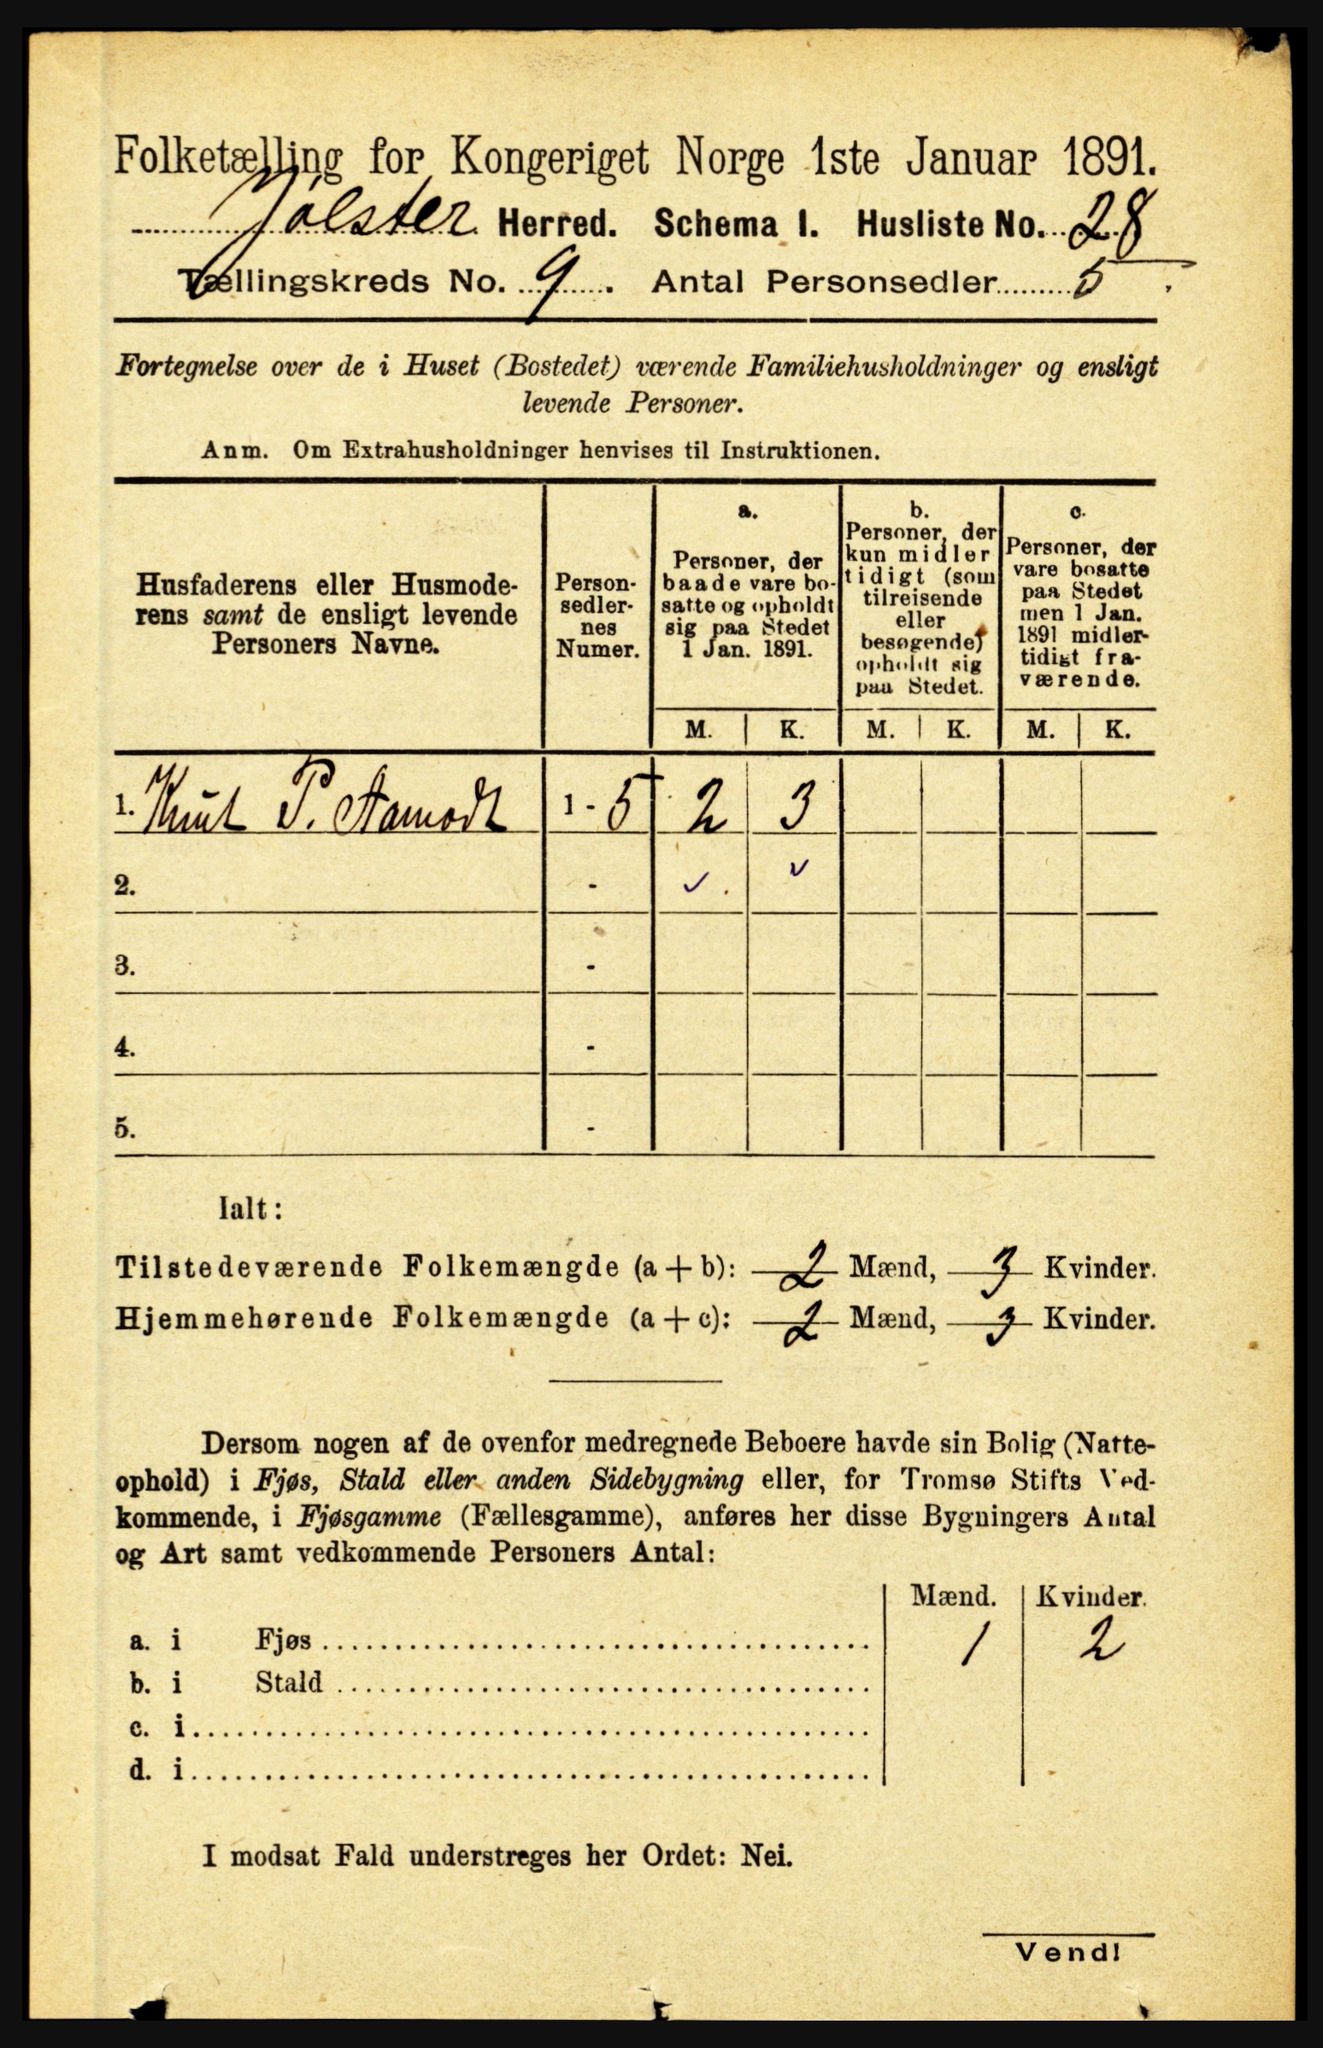 Folketælling for Kongeriget Norge 1ste Januar 1891.
Jölster Herred. Schema I. Husliste No. 28
Tællingskreds No. 9. Antal Personsedler 5.
Fortegnelse over de i Huset (Bostedet) værende Familiehusholdninger og ensligt
levende Personer.
Anm. Om Extrahusholdninger henvises til Instruktionen.
Husfaderens eller Husmode-
rens samt de ensligt levende
Personers Navne.
Person-
sedler-
nes
Numer.
a.
Personer, der
baade vare bo-
satte og opholdt
sig paa Stedet
1 Jan. 1891.
b.
Personer, der
kun midler
tidigt (som
tilreisende
eller
besøgende)
opholdt sig
paa Stedet.
c.
Personer, der
vare bosatte
paa Stedet
men 1 Jan.
1891 midler-
tidigt fra-
værende.
M. K. M. K. M. K.
1. Knut P. Aamodt 1 - 5 2 3
2. - ✓. ✓
3. -
4. -
5. -
Ialt:
Tilstedeværende Folkemængde (a + b): 2 Mænd, 3 Kvinder.
Hjemmehørende Folkemængde (a + c): 2 Mænd, 3 Kvinder.
Dersom nogen af de ovenfor medregnede Beboere havde sin Bolig (Natte-
ophold) i Fjøs, Stald eller anden Sidebygning eller, for Tromsø Stifts Ved-
kommende, i Fjøsgamme (Fællesgamme), anføres her disse Bygningers Antal
og Art samt vedkommende Personers Antal:
Mænd. Kvinder.
a. i Fjøs 1 2
b. i Stald
c. i
d. i
I modsat Fald understreges her Ordet: Nei.
Vend!